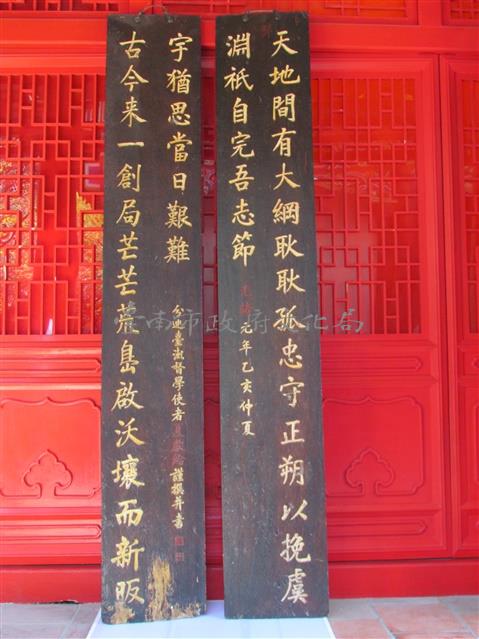 天地間有大綱耿耿孤忠守正朔以挽虞
淵祇自完吾志節
光緒元年乙亥仲夏
古今来一創局芒芒荒島啟沃壤而新昄
宇猶思當日艱難
分巡臺澎督學使者夏獻綸謹撰并書
臺南市政府文化局